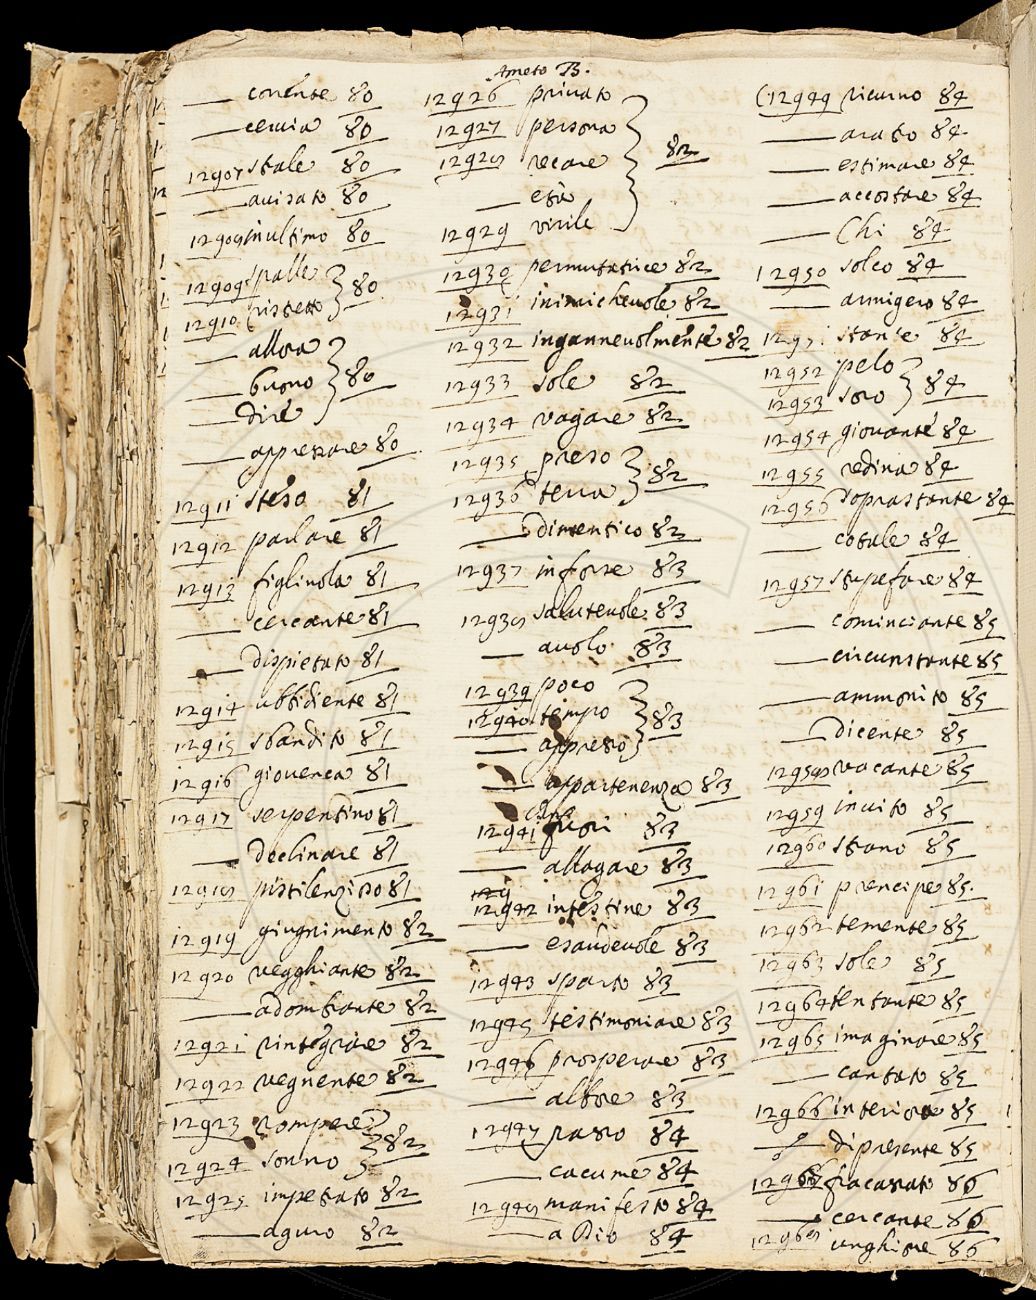 Ameto B.
—— corrente 80
—— cervia 80
12907 stale 80
—— auisato 80
12908 inultimo 80
12909 spalle
12910 ristretto } 80
—— allora
—— buono } 80
—— dire
—— appressare 80
12911 steso 81
12912 parlare 81
12913 figliuola 81
—— cercante 81
—— dispietato 81
12914 ubbidiente 81
12915 sbandito 81
12916 giouenca 81
12917 serpentino 81
—— declinare 81
12918 pistilenzioso 81
12919 giugnimento 82
12920 uegghiante 82
—— adombrante 82
12921 rintegrare 82
12922 uegnente 82
12923 rompere
12924 sonno } 82
12925 impetrato 82
—— aguro 82
12926 priuato
12927 persona
12928 recare } 82
—— età
12929 virile
12930 permutatrice 82
12931 inimicheuole 82
12932 inganneuolmente 82
12933 sole 82
12934 vagare 82
12935 preso
12936 terra } 82
—— dimentico 82
12937 inforse 83
12938 saluteuole 83
—— auolo 83
12939 poco
12940 tempo } 83
—— appresso
—— appartenenza 83
12941 fuori 83
—— allagare 83
12942 intestine 83
—— esaudeuole 83
12943 sparto 83
12945 testimoniare 83
12946 prosperare 83
—— altore 83
12947 passo 84
—— cacume 84
12948 manifesto 84
—— a Dio 84
(12949 ricurno 84
—— arato 84
—— estimare 84
—— accostare 84
—— Chi 84
12950 solco 84
—— armigero 84
1295. stante 84
12952 pelo
12953 soro } 84
12954 giouante 84
12955 redina 84
12956 soprastante 84
—— cotale 84
12957 stupefare 84
—— cominciante 85
—— circunstante 85
—— ammonito 85
—— dicente 85
12958 vacante 85
12959 inuito 85
12960 strano 85
12961 prencipe 85.
12962 temente 85
12963 sole 85
12964 tentante 85
12965 imaginare 85
—— cantato 85
12966 interiore 85
—— dipresente 85
12967 fracassato 86
—— cercante 86
12968 unghione 86